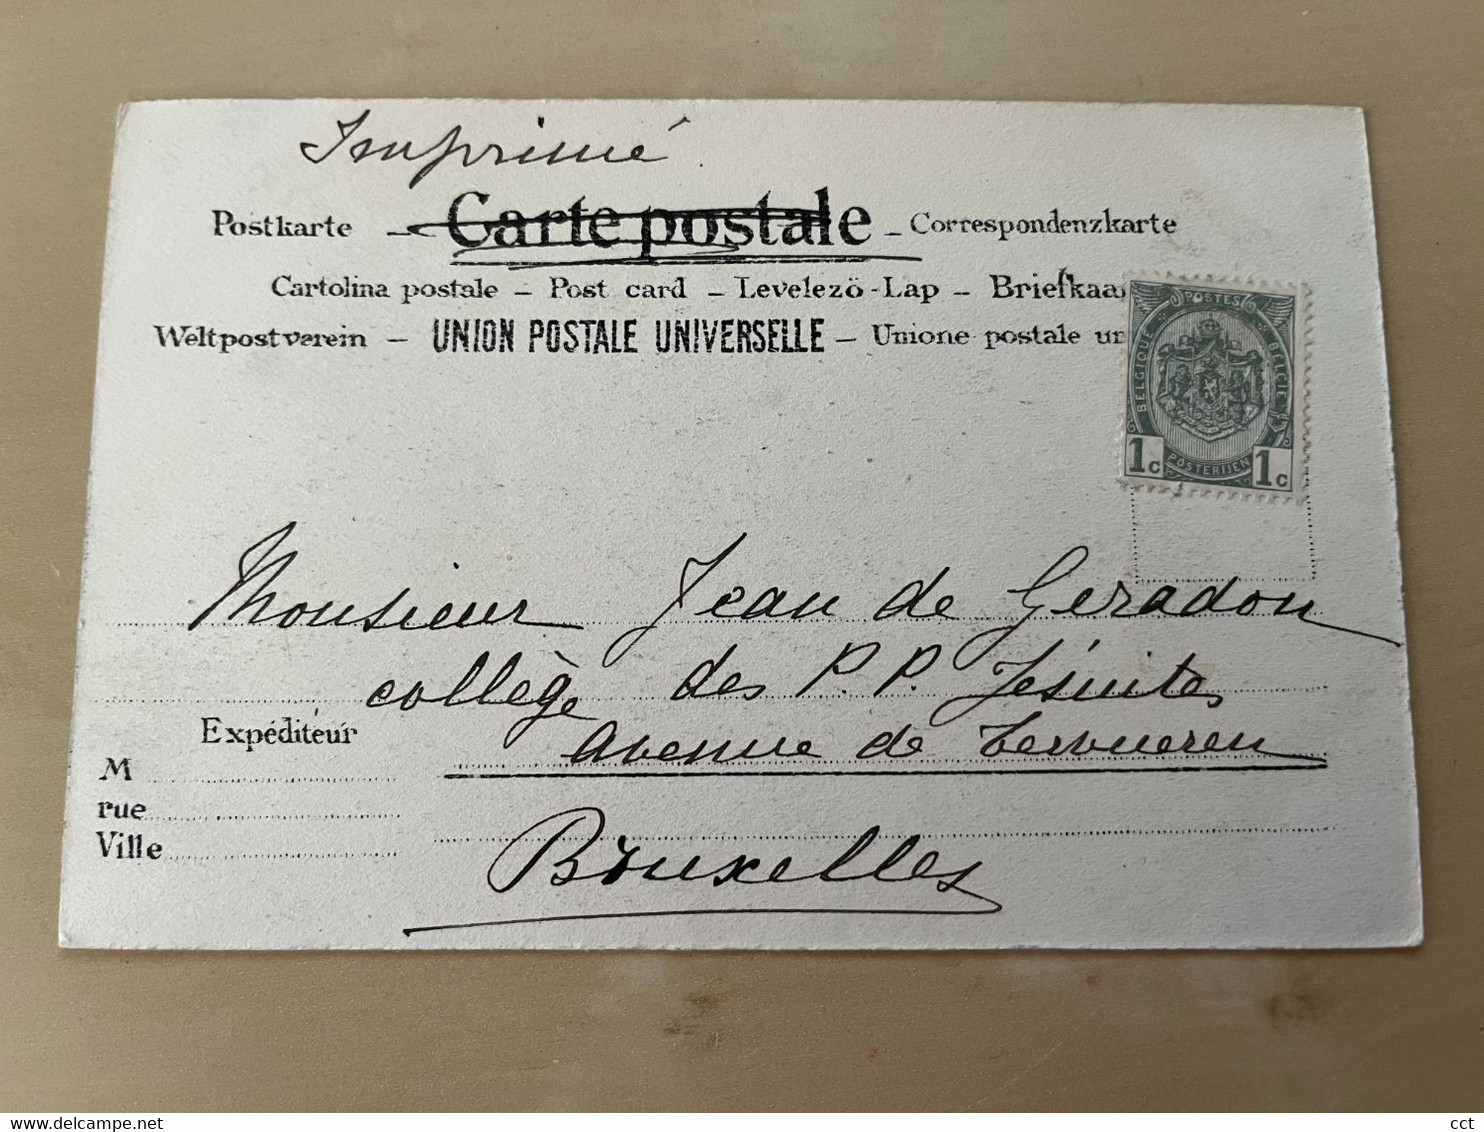 Imprimé
Postkarte – Carte postale – Correspondenzkarte
Cartolina postale – Post card – Levelezö-Lap – Briefkaa
Weltpostverein – UNION POSTALE UNIVERSELLE – Unione postale un
POSTES
BELGIQUE BELGIE
1c POSTERIJEN 1c
Monsieur Jean de Geradon
collège des P. P. Jésuites
Expéditeur
avenue de Tervueren
M
rue
Ville
Bruxelles
cct